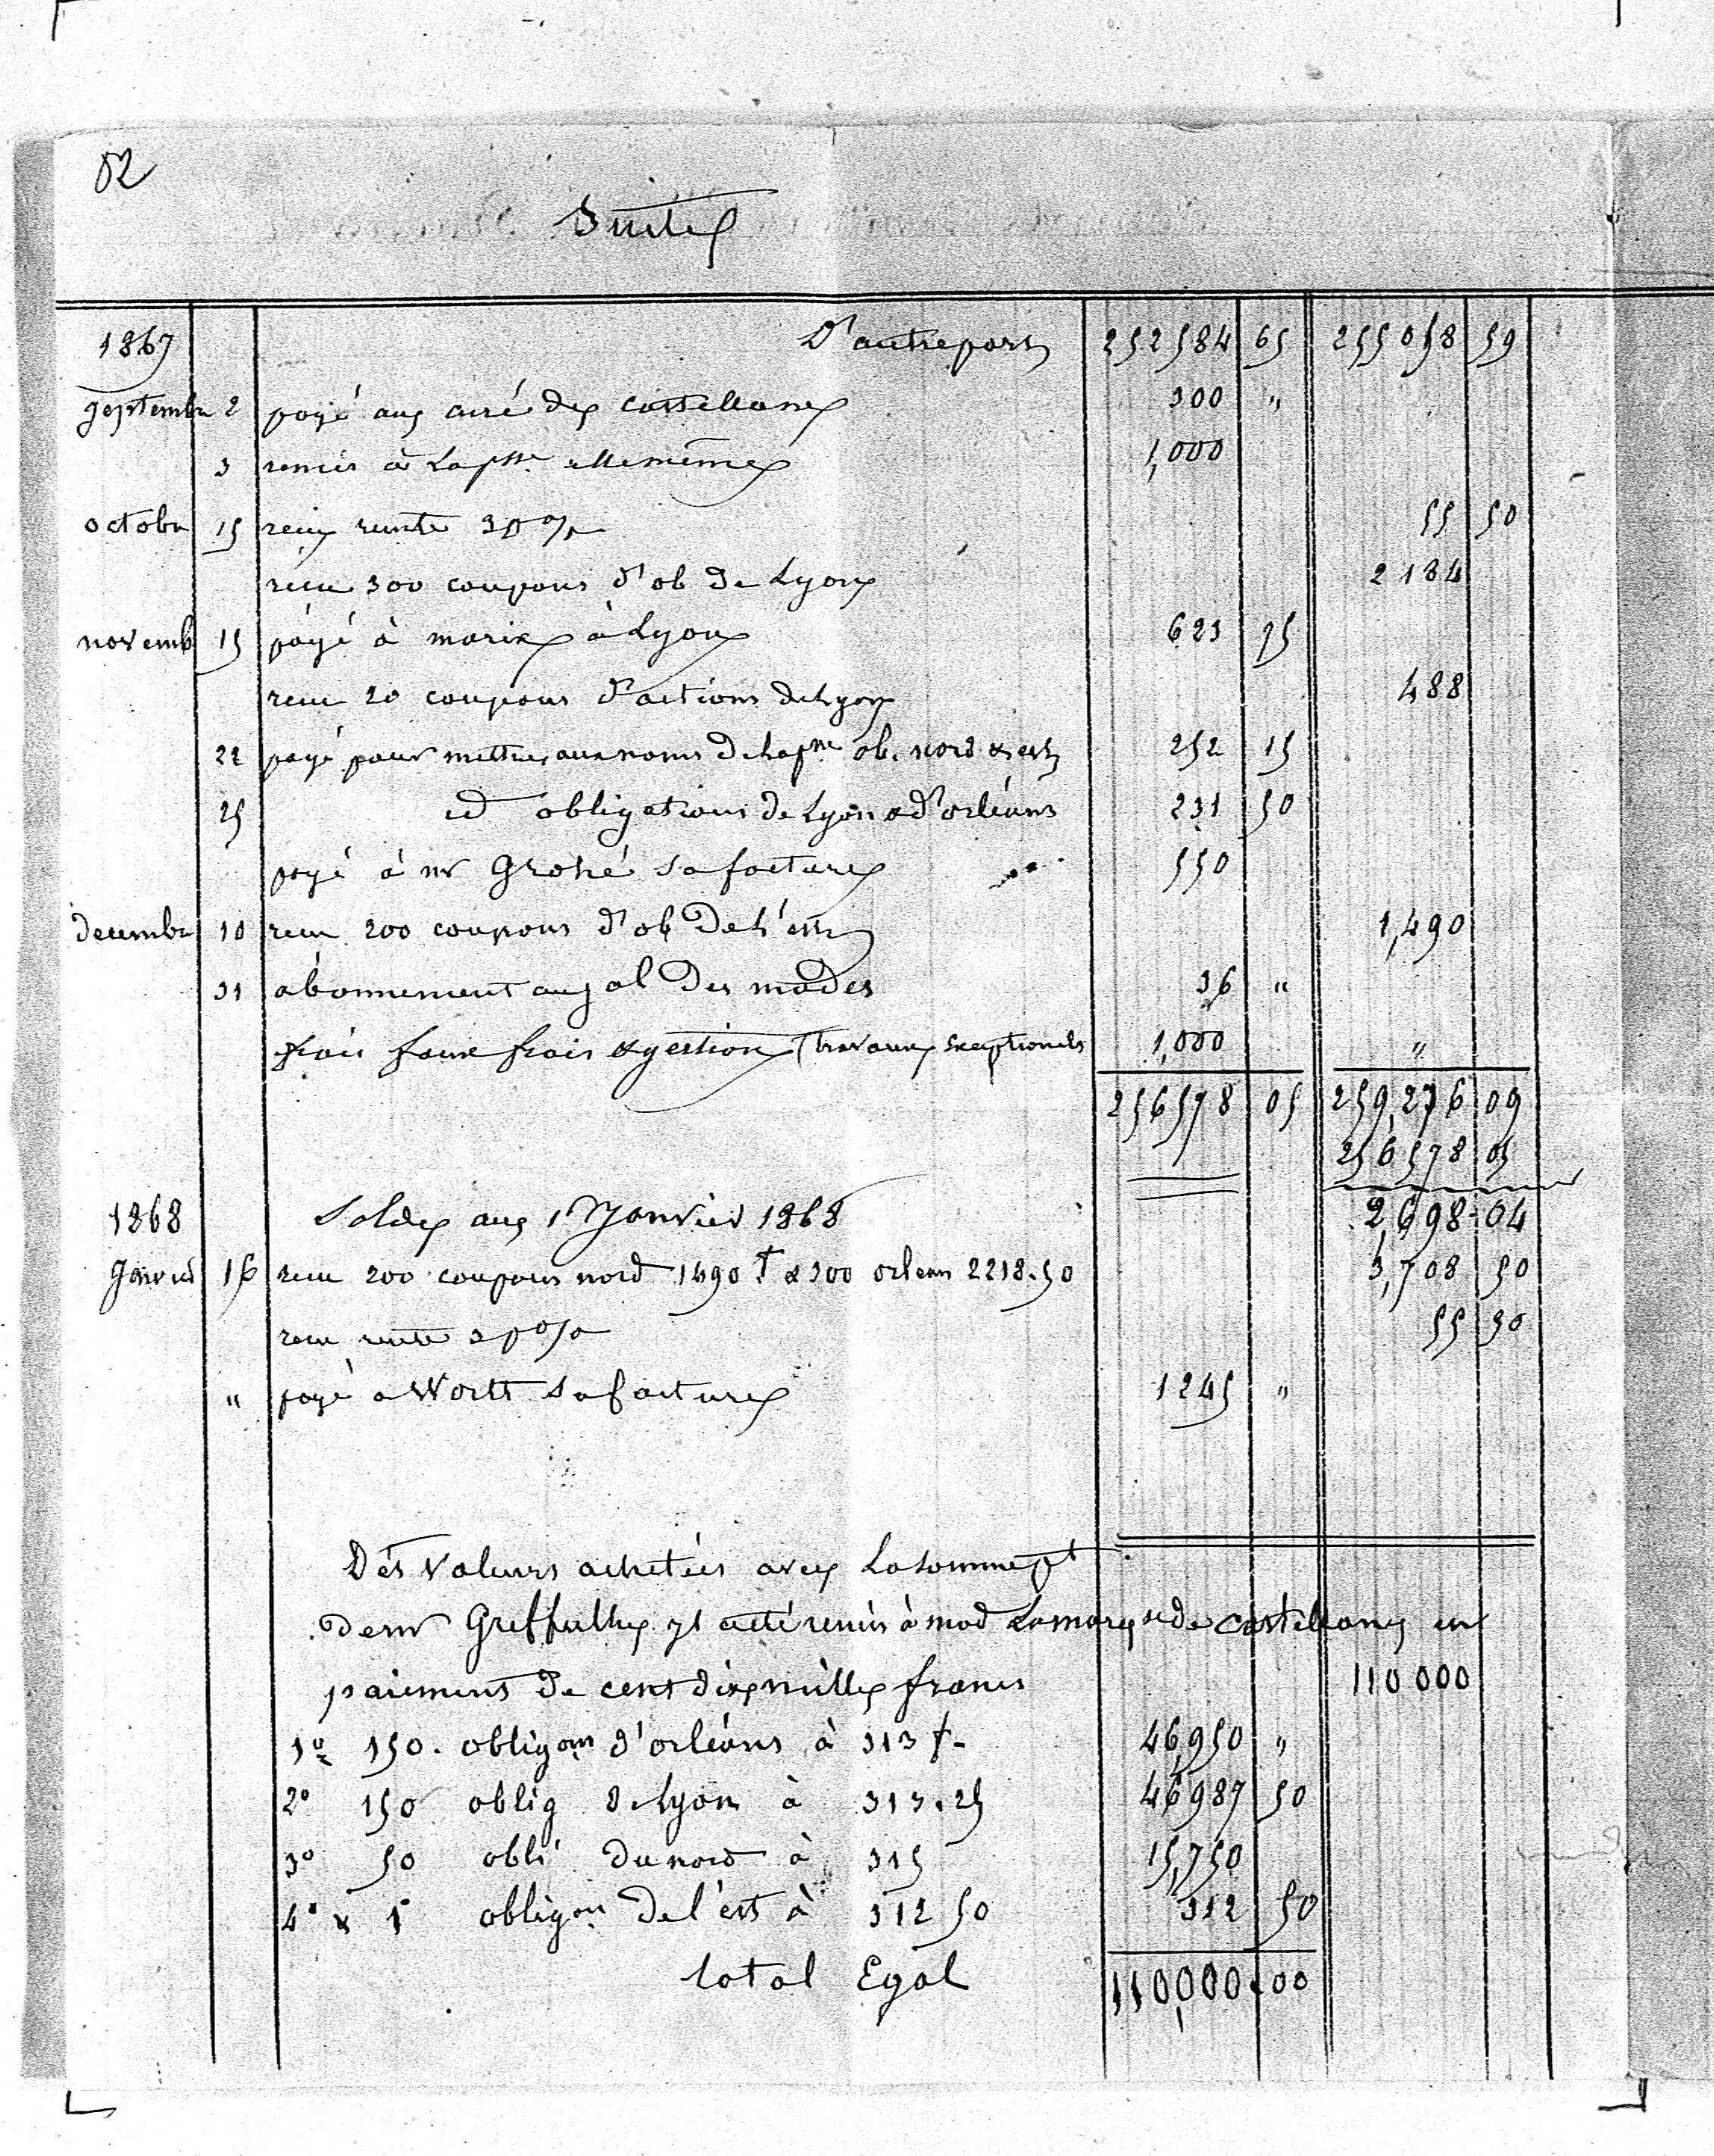 52
Suite
1867 D'autrepart 252584 65 255058 59
Septembre 2 payé au curé de castellane 300 "
3 remis à La psse elle même 1,000
octobre 15 reçu rente 3 p % 55 50
reçu 300 coupons d'ob de Lyon 2184
novemb 15 payé à marix à Lyon 623 75
reçu 20 coupons d'actions de Lyon 488
22 payé pour mettre aux noms de la psse ob. nord & est 252 15
25 id obligations de Lyon & d'orléans 231 50
payé à mr Grohé sa facture 550
decembre 10 reçu 200 coupons d'ob De L'est 1,490
31 abonnement au jal Des modes 36 "
frais faux frais & gestion (travaux exceptionels 1,000 "
256578 05 259,276 09
256578 05
1868 Solde au 1r Janvier 1868 2,698.04
Janvier 16 reçu 200 coupons nord 1490 f & 300 orleans 2218.50 3,708 50
reçu rente 3 p % 55 50
" payé a Worth sa facture 1245 "
Des Valeurs achetées avec La somme pt
de mr Greffulhe il a été remis à mad La marqse de castellane en
paiement de cent dix mille francs 110000
1o 150. obligons d'orléans à 313 f. 46,950 "
2o 150 oblig de Lyon à 313.25 46987 50
3o 50 obli du nord à 315 15,750
4o & 1 obligon De l'est à 312 50 312 50
total Egal 110,000.00